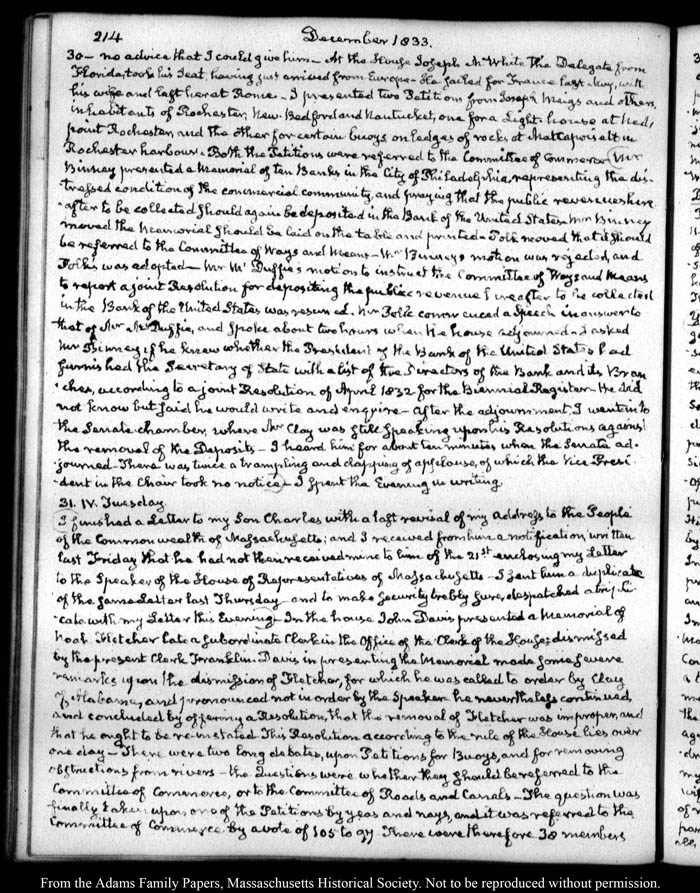 214 December 1833.
30 — no advice that I could give him — At the House Joseph M White the Delegate from
Florida, took his Seat, having just arrived from Europe — He sailed for France last May, with
his wife and left her at Rome — I presented two Petitions from Joseph Meigs and others,
inhabitants of Rochester, New-Bedford and Nantucket, one for a Light-house at Ned,
point Rochester, and the other for certain buoys on ledges of rocks at Mattapoisett in
Rochester harbour. Both the Petitions were referred to the Committee of Commerce — Mr
Binney presented a Memorial of ten Banks in the City of Philadelphia, representing the dis-
tressed condition of the commercial community, and praying that the public revenues here-
after to be collected should again be deposited in the Bank of the United States. Mr Binney
moved the Memorial should be laid on the table and printed — Polk moved that it should
be referred to the Committee of Ways and Means — Mr Binney's motion was rejected, and
Polk's was adopted — Mr Mc Duffie's motion to instruct the Committee of Ways and Means
to report a joint Resolution for depositing the public revenue hereafter to be collected
in the Bank of the United States was resumed. Mr Polk commenced a Speech in answer to
that of Mr McDuffie, and spoke about two hours when the house adjourned. I asked
Mr Binney, if he knew whether the President of the Bank of the United States had
furnished the Secretary of State with a list of the Directors of the Bank and its Bran
ches, according to a joint Resolution of April 1832 for the Biennial Register — He did
not know but said he would write and enquire — After the adjournment, I went into
the Senate chamber, where Mr Clay was still speaking upon his Resolutions against
the removal of the Deposits — I heard him for about ten minutes when the Senate ad-
journed — There was twice a trampling and clapping of applause, of which the Vice-Presi-
dent in the Chair took no notice — I spent the Evening in writing.
31. IV. Tuesday.
I finished a Letter to my Son Charles with a last revisal of my Address to the People
of the Commonwealth of Massachusetts; and I received from him a notification, written
last Friday that he had not then received mine to him of the 21st enclosing my Letter
to the Speaker of the House of Representatives of Massachusetts — I sent him a duplicate
of the same Letter last Thursday — and to make security trebly sure, despatched a tripli-
cate with my Letter this Evening — In the house John Davis presented a Memorial of
Noah Fletcher late a subordinate Clerk in the Office of the Clerk of the House; dismissed
by the present Clerk Franklin. Davis in presenting the Memorial made some severe
remarks upon the dismission of Fletcher, for which he was called to order by Clay
of Alabama, and pronounced not in order by the Speaker he nevertheless continued,
and concluded by offering a Resolution, that the removal of Fletcher was improper, and
that he ought to be re-instated. This Resolution according to the rule of the House lies over
one day — There were two long debates, upon Petitions for Buoys, and for removing
obstructions from rivers — the Questions were whether they should be referred to the
Committee of Commerce, or to the Committee of Roads and Canals — The question was
finally taken upon one of the Petitions by yeas and nays, and it was referred to the
Committee of Commerce by a vote of 105 to 97 There were therefore 38 members
From the Adams Family Papers, Massachusetts Historical Society. Not to be reproduced without permission.